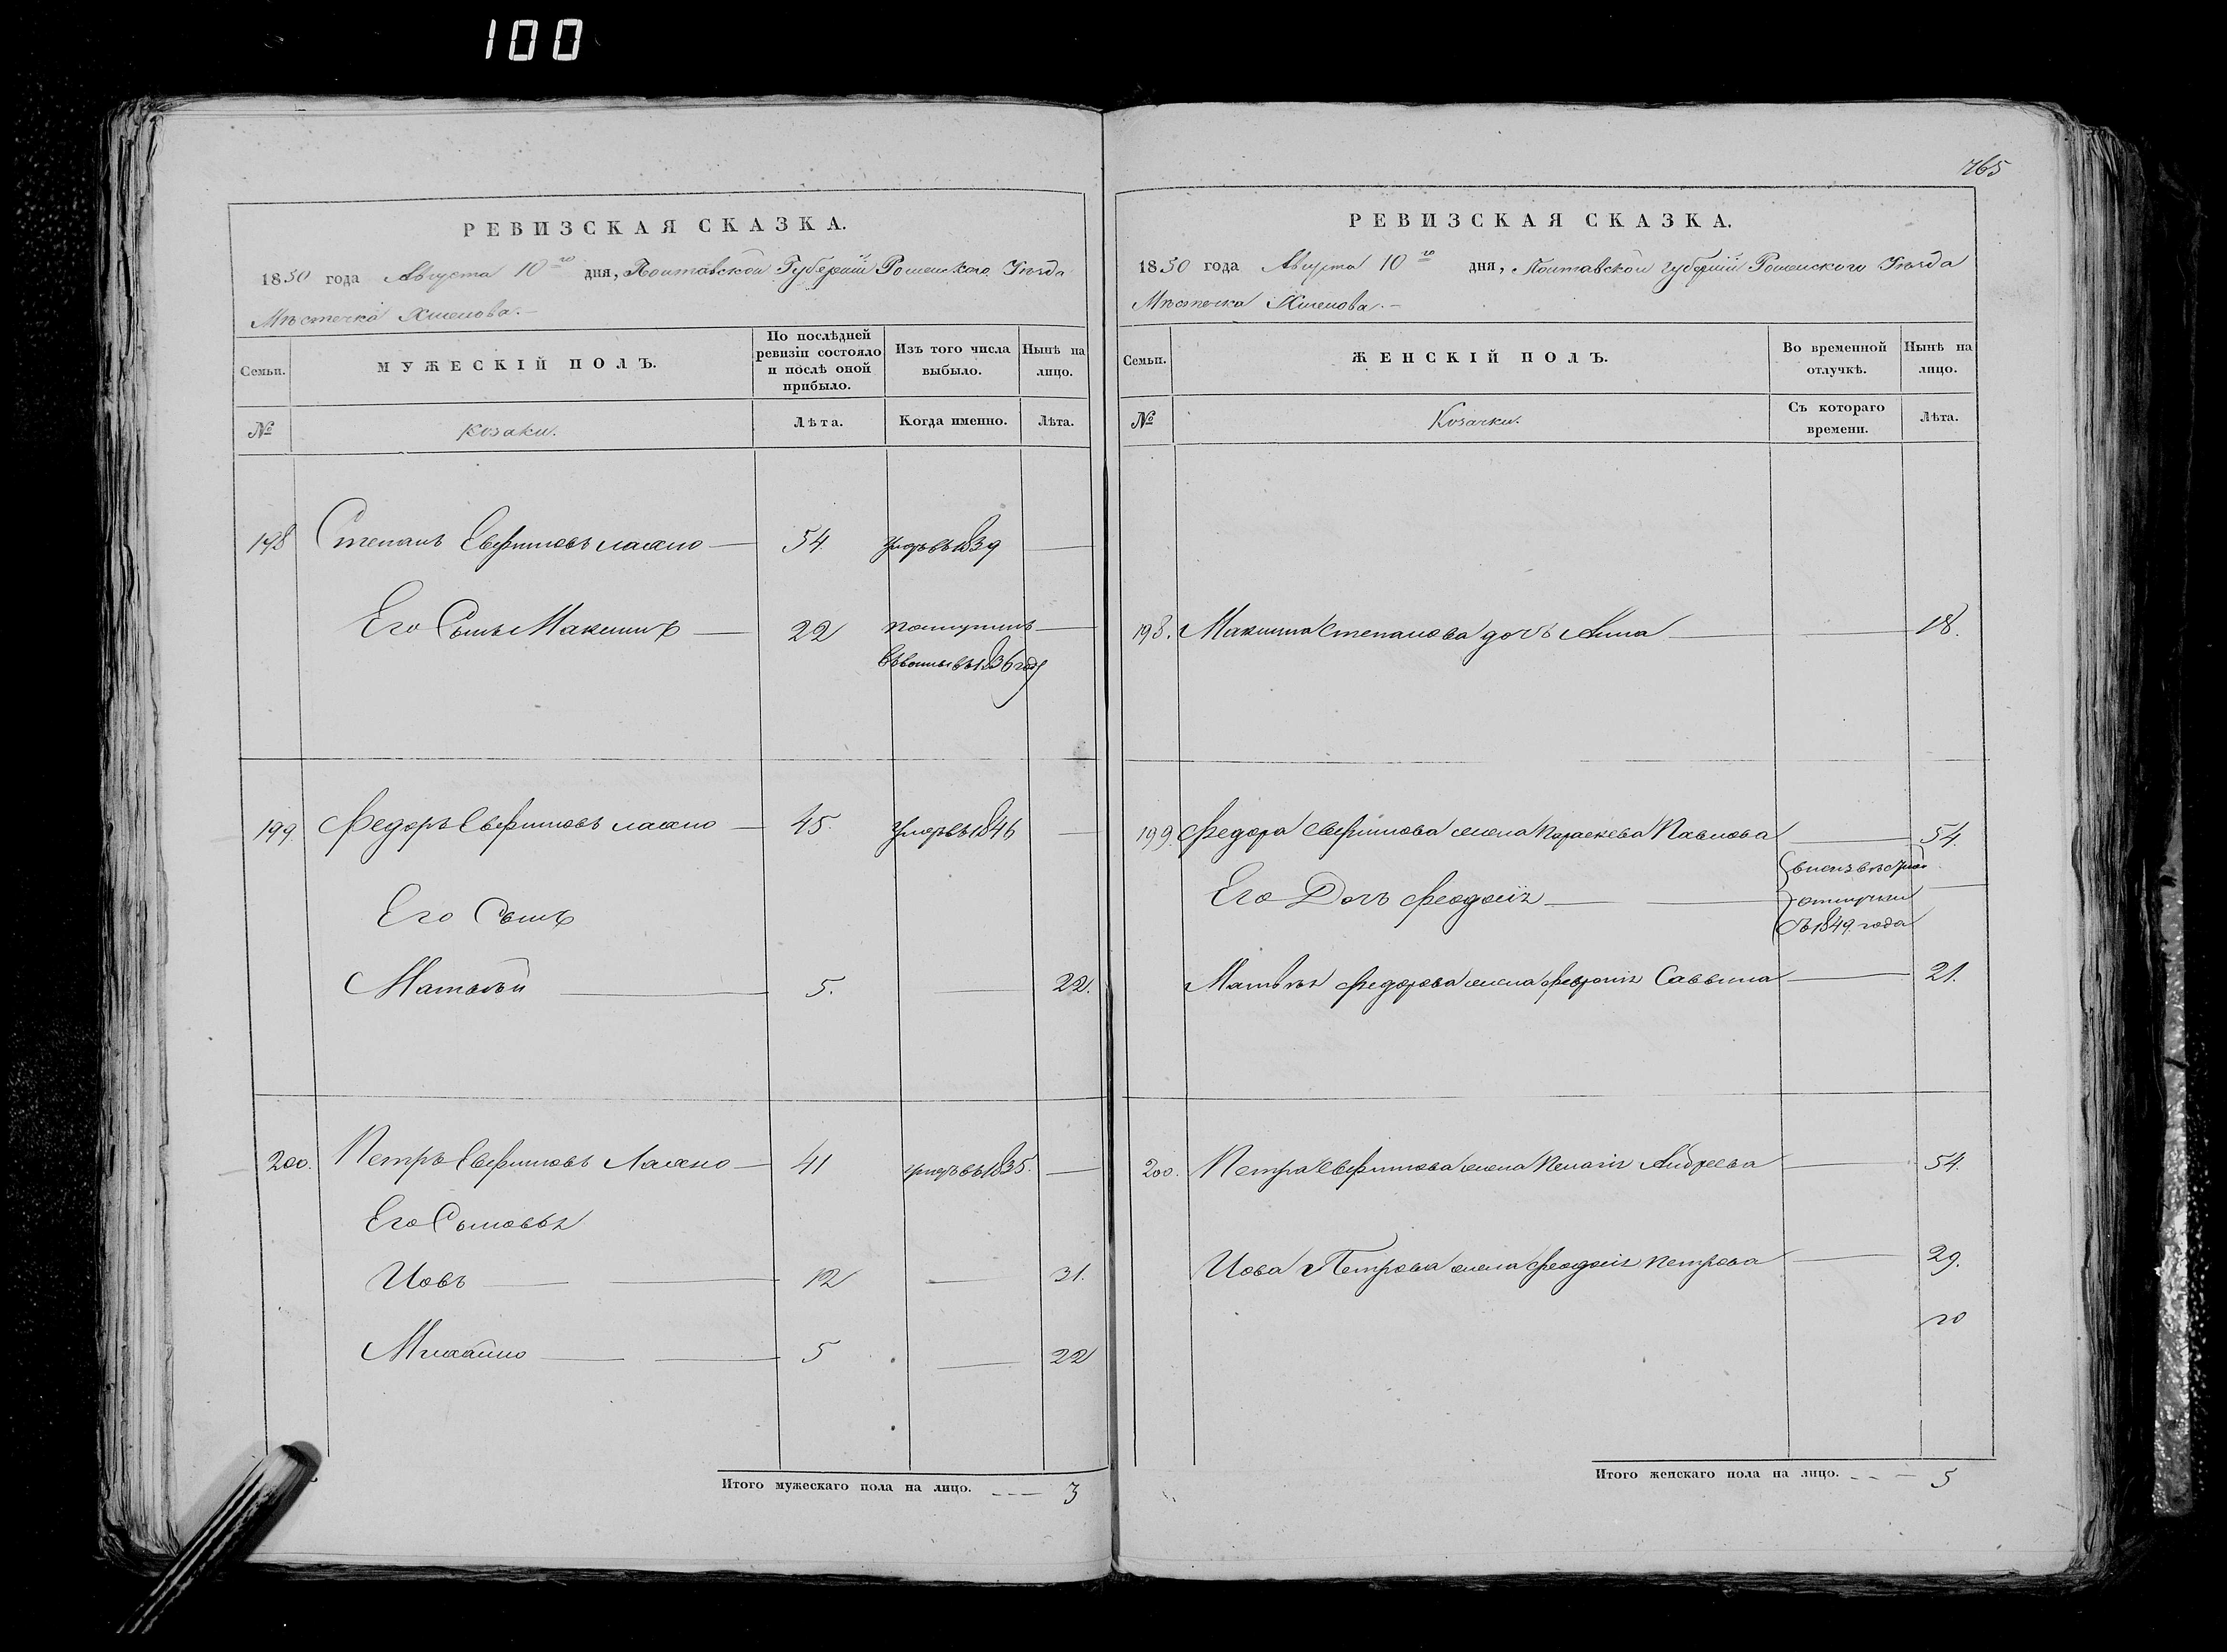 100
765
РЕВИЗСКАЯ СКАЗКА.
1850 года Августа 10го дня, Полтавской Губерніи Роменского Уѣзда
Мѣстечка Хмелова.
Семьи. МУЖЕСКІЙ ПОЛЪ. По послѣдней ревизіи состояло и послѣ оной прибыло. Изъ того числа выбыло. Нынѣ на лицо.
№ Козаки. Лѣта. Когда именно. Лѣта.
198 Степанъ Евфимовъ Лахно 54. умръ въ 1839
Его Сынъ Максимъ 22
въ 1836 году
199. Федоръ Евфимовъ Лахно 45. умръ въ 1846
Его Сынъ
Матвѣй 5. 22.
200. Петръ Евфимовъ Лахно 41 умръ въ 1835.
Его Сыновья
Иовъ 12 31.
Михайло 5 22
Итого мужескаго пола на лицо. 3
РЕВИЗСКАЯ СКАЗКА.
1850 года Августа 10го дня, Полтавской Губерніи Роменского Уѣзда
Мѣстечка Хмелова.
Семьи. ЖЕНСКІЙ ПОЛЪ. Во временной отлучкѣ. Нынѣ на лицо.
№ Козачки. Съ котораго времени. Лѣта.
198. Максима Степанова дочь Анна 18.
199. Федора Евфимова жена Параскева Павлова 54.
Его Дочь Феодосія
отлучки
съ 1849 года
Матвѣя Федорова жена Февронія Саввина 21.
200. Петра Евфимова жена Пелагія Андреева 54.
Иова Петрова жена Феодосія Петрова 29.
20
Итого женскаго пола на лицо. 5